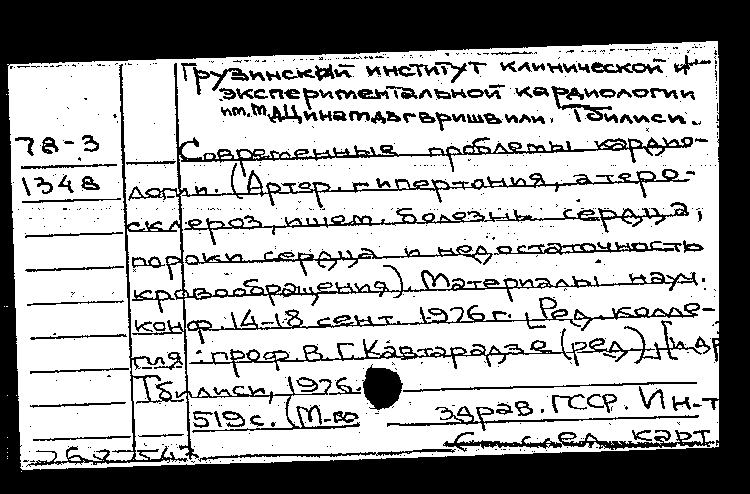 Грузинский институт клинической и
экспериментальной кардиологии
им. М.Д. Цинамдзгвришвили. Тбилиси.
78-3
Современные проблемы кардио-
1348
логии. (Артер. гипертония, атеро-
склероз, ишем. болезнь сердца,
пороки сердца и недостаточность
кровообращения). Материалы науч.
конф. 14-18 сент. 1976 г. [Ред. колле-
гия: проф. В. Г. Кавтарадзе (ред.), [и др
Тбилиси, 1976.
519 с. (М-во здрав. ГССР. Ин-т
след. карт